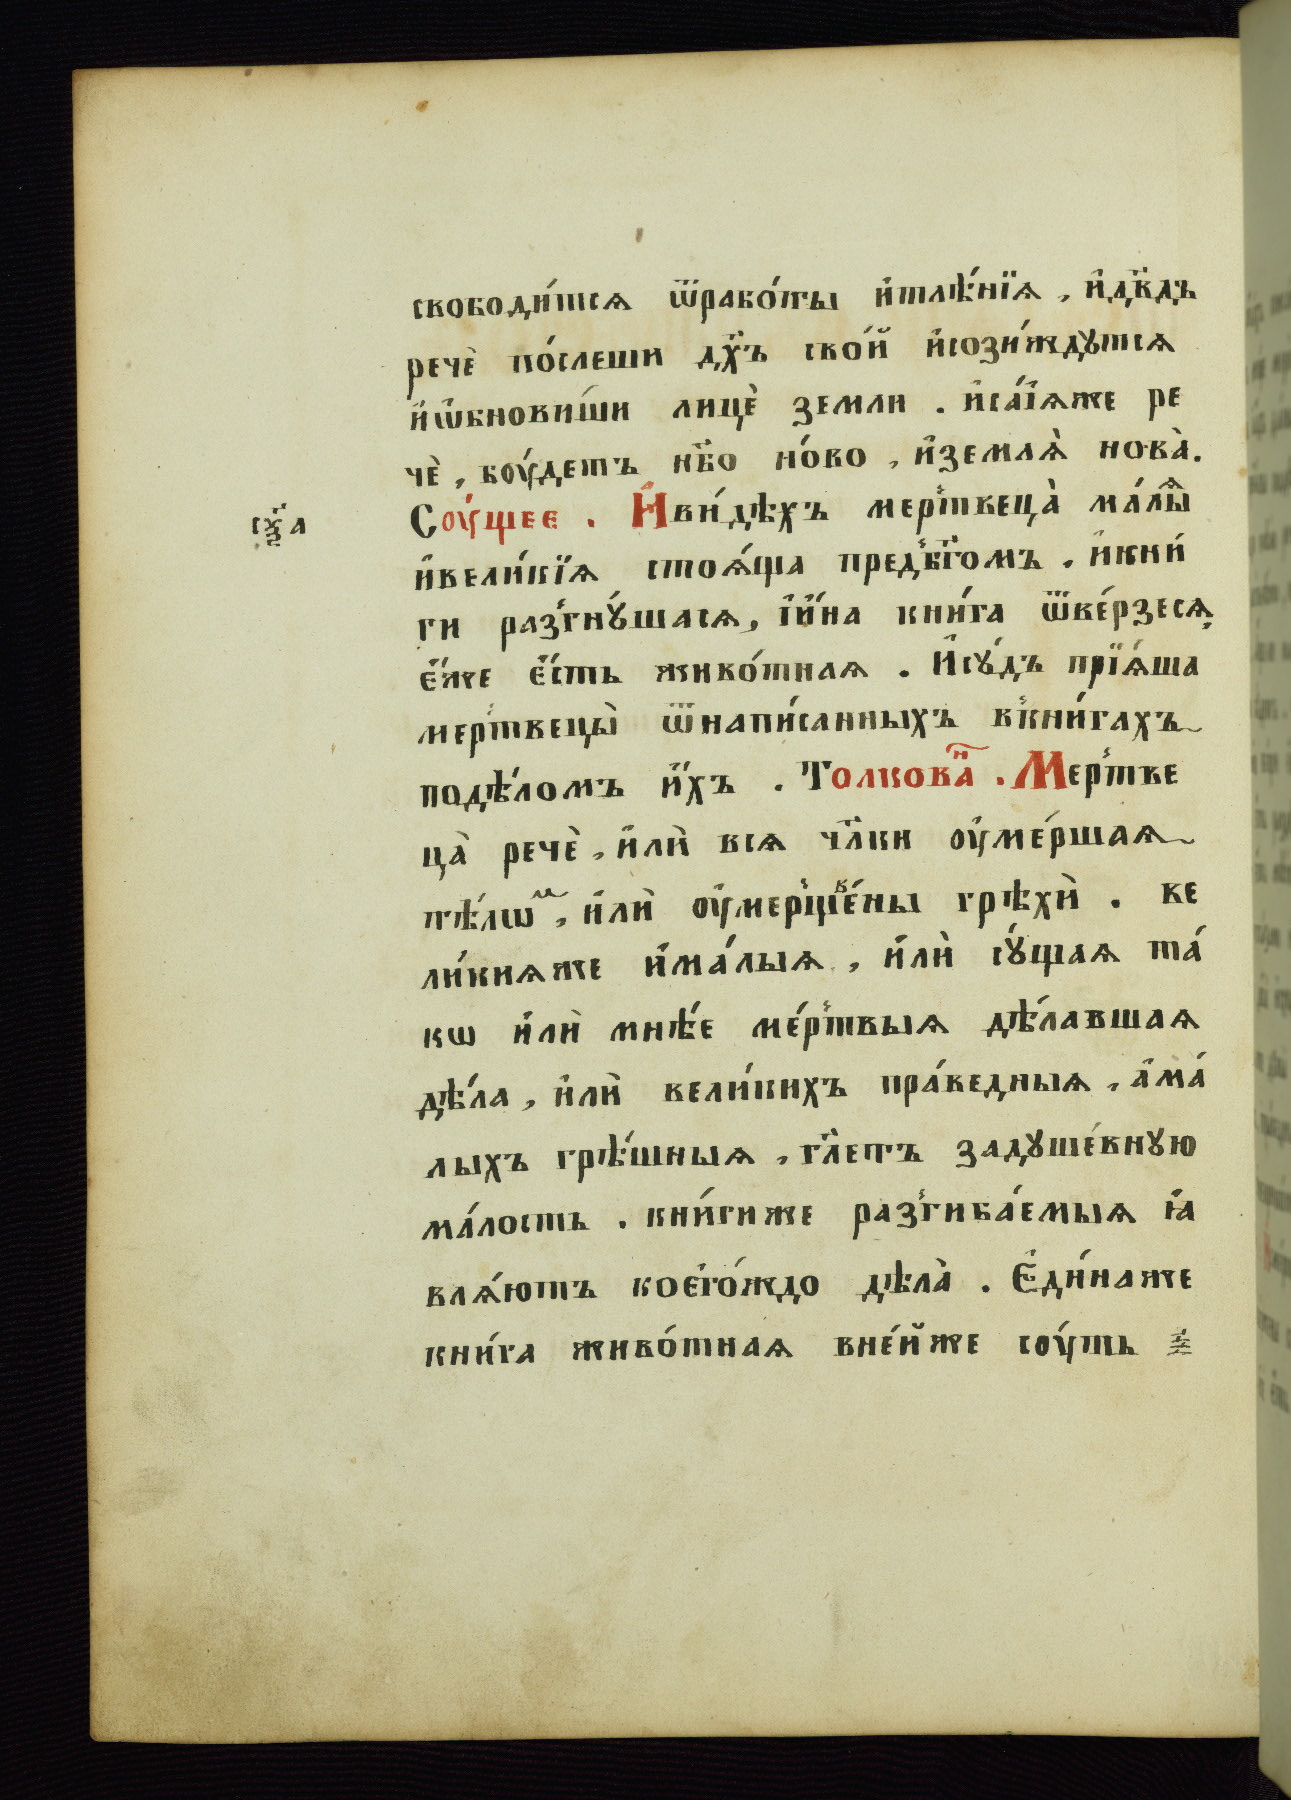 свободи́тсѧ ѿрабо́ты и҆тлѣ́нїѧ , и҆дв҃дъ
речѐ по́слеши дх҃ъ сво́й и҆сози́ждꙋтсѧ
и҆ѡ҆бнови́ши лицѐ земли . и҆са́їѧже ре
чѐ , боу́детъ нб҃о но́во , и҆землѧ̀ нова̀ .
Соу́щее . И҆ви́дѣхъ мерⷭ҇твеца̀ ма́лыѧ
сꙋ҃а
и҆вели́кїѧ стоѧ́ща предъбг҃омъ . и҆кни́
ги разгнꙋ́шасѧ , і҆и҆́на кни́га ѿве́рзесѧ ,
є҆́же є҆́сть живо́тнаѧ . И҆сꙋ́дъ прїѧ́ша
мертвецы̀ ѿнапи́санныхъ вкни́гахъ
подѣ́ломъ и҆́хъ . Толкова́н . Мертве
ца̀ речѐ , и҆лѝ всѧ чл҃ки оу҆ме́ршаѧ
тѣ́лѡм , и҆лѝ оу҆мерщве́ны грѣхѝ . ве
ли́киѧже и҆ма́лыѧ , и҆лѝ сꙋ́щаѧ та́
кѡ и҆лѝ мнѣ́е ме́ртвыѧ дѣ́лавшаѧ
дѣ́ла , и҆лѝ вели́кихъ пра́ведныѧ , а҆ма́
лыхъ грѣ́шныѧ , гл҃етъ задꙋше́внꙋю
ма́лость . кни́гиже разгиба́емыѧ ꙗ҆
влѧ́ютъ коєго́ждо дѣла̀ . Є҆ди́наже
кни́га живо́тнаѧ вне́йже соу́ть